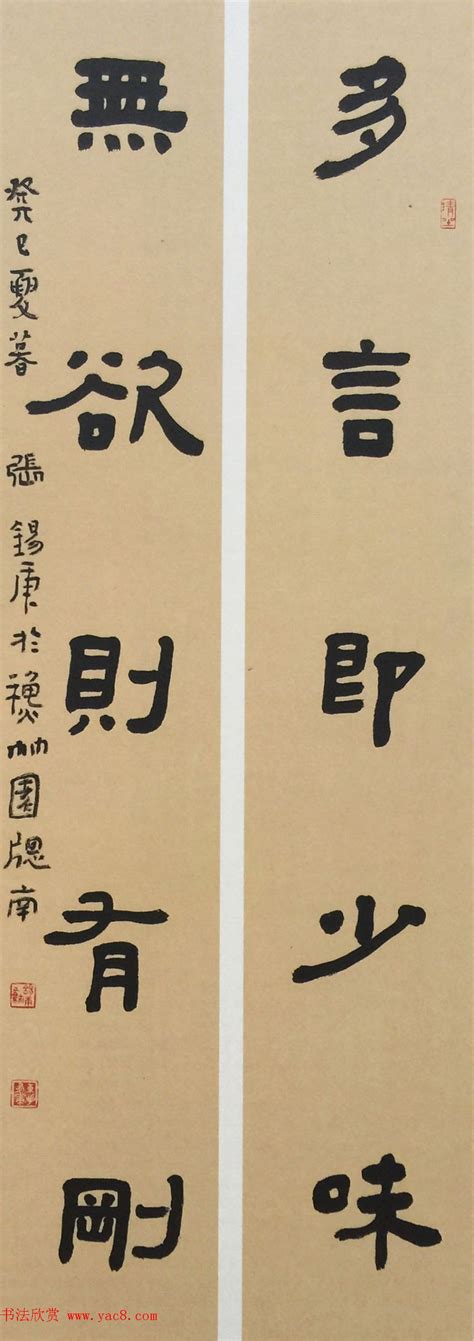 多言即少味
無欲則有剛
癸巳夏暮 張錫庚於 園 南
书法欣赏 www.yac8.com